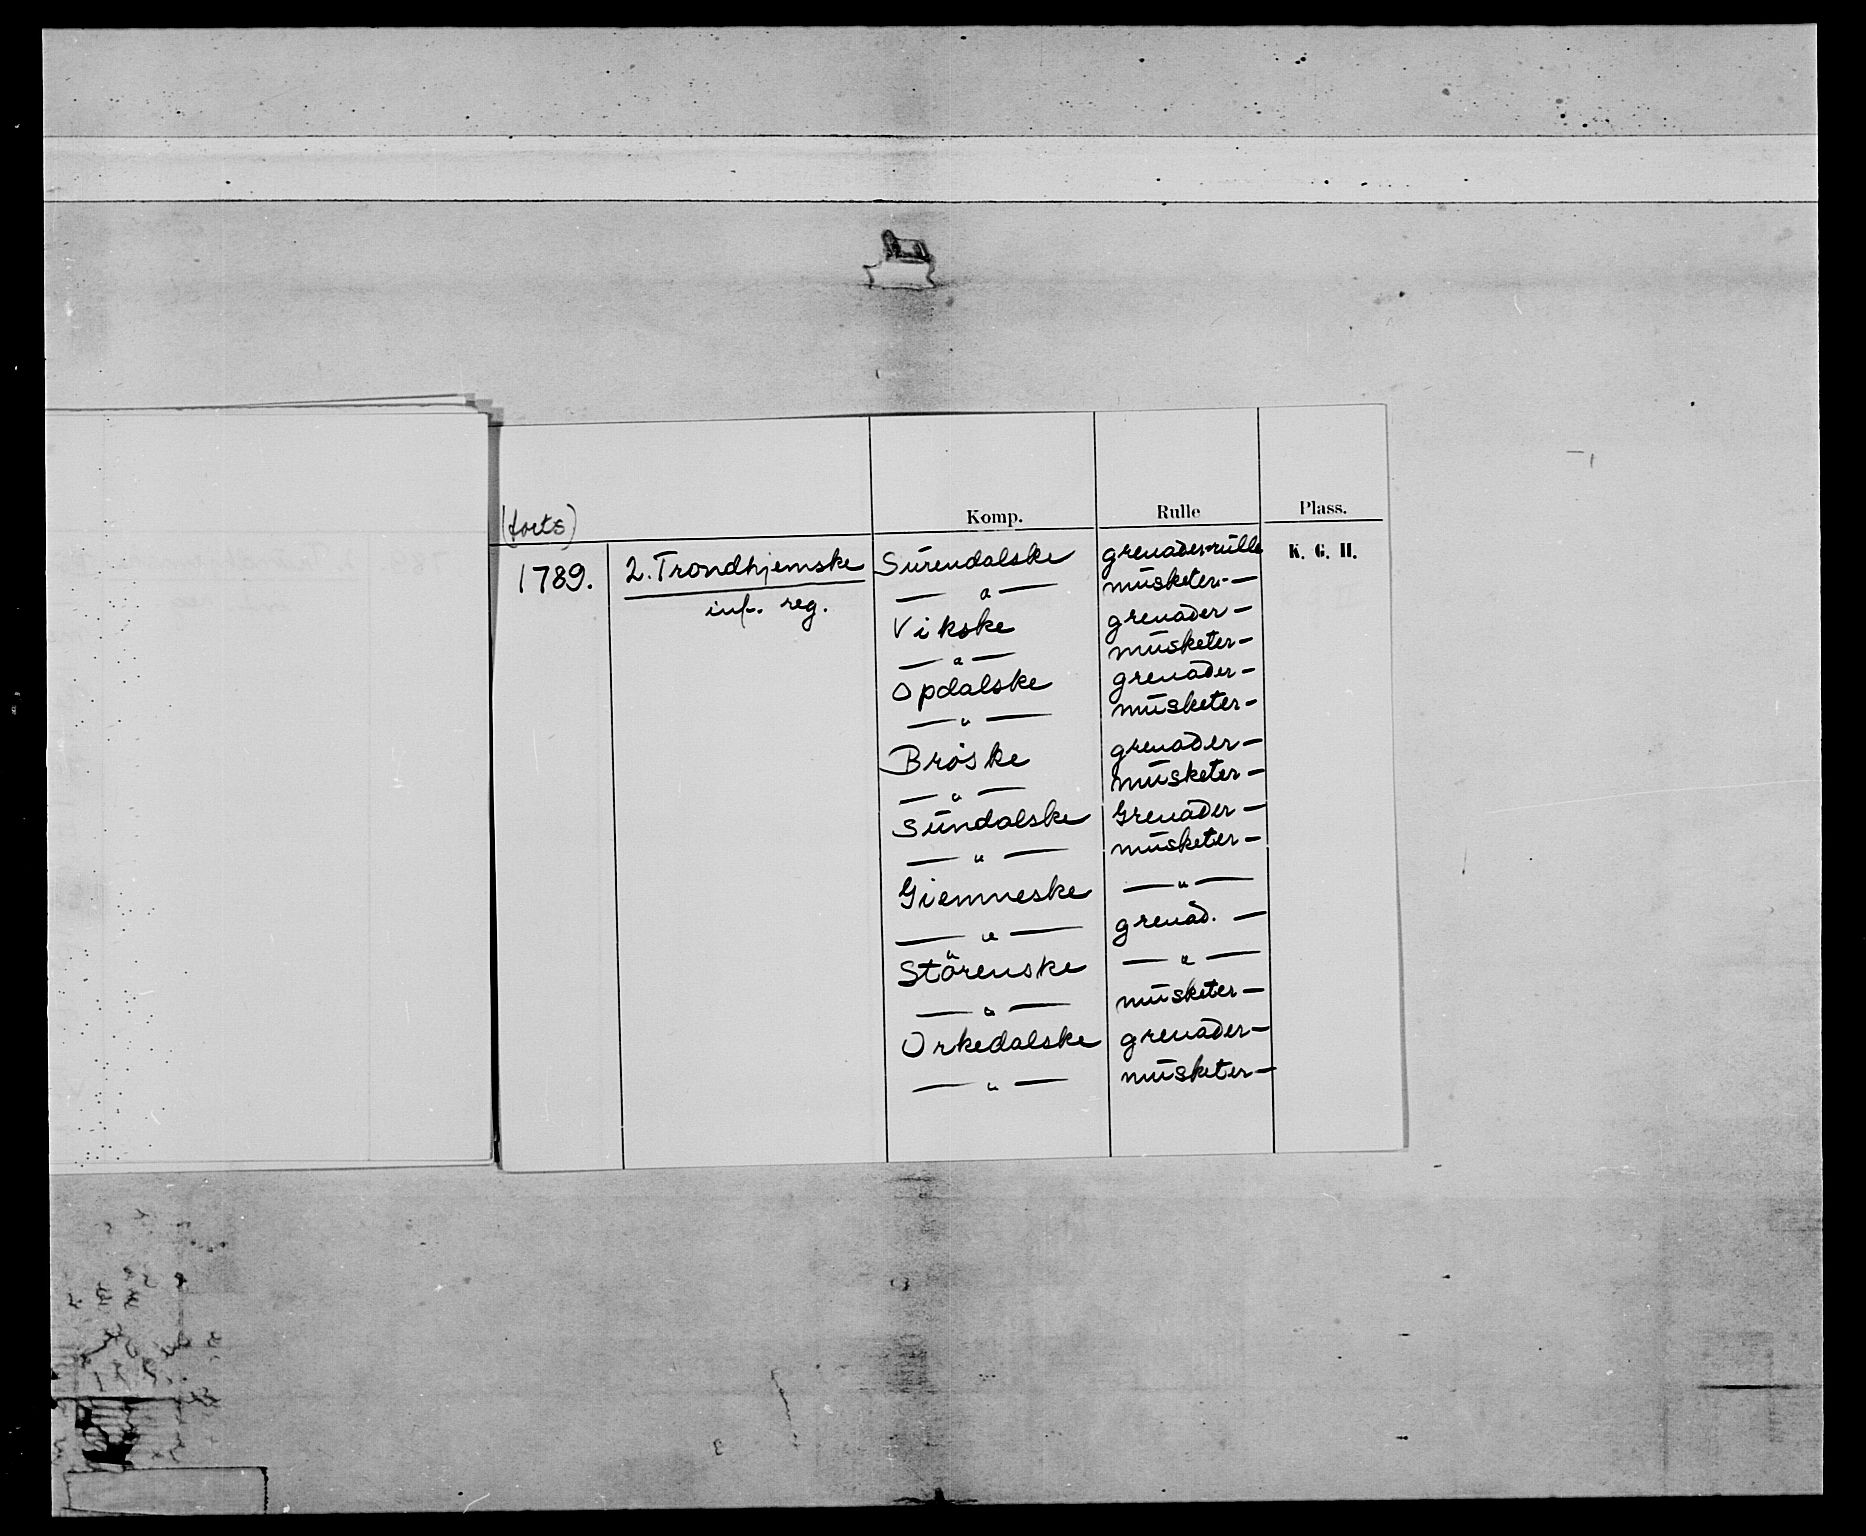 (forts)
Komp. Rulle Plass.
1789. 2. Trondhjemske Surendalske grenader-rulle K. G. H.
inf. reg. — " — musketer- —
Vikske grenader —
— " — musketer —
Opdalske grenader —
— " — musketer —
Brøske grenader —
— " — musketer —
Sundalske Grenader —
— " — musketer —
Giemneske — " —
— " — grenad. —
Störenske — " —
— " — musketer —
Orkedalske grenader —
— " — musketer —